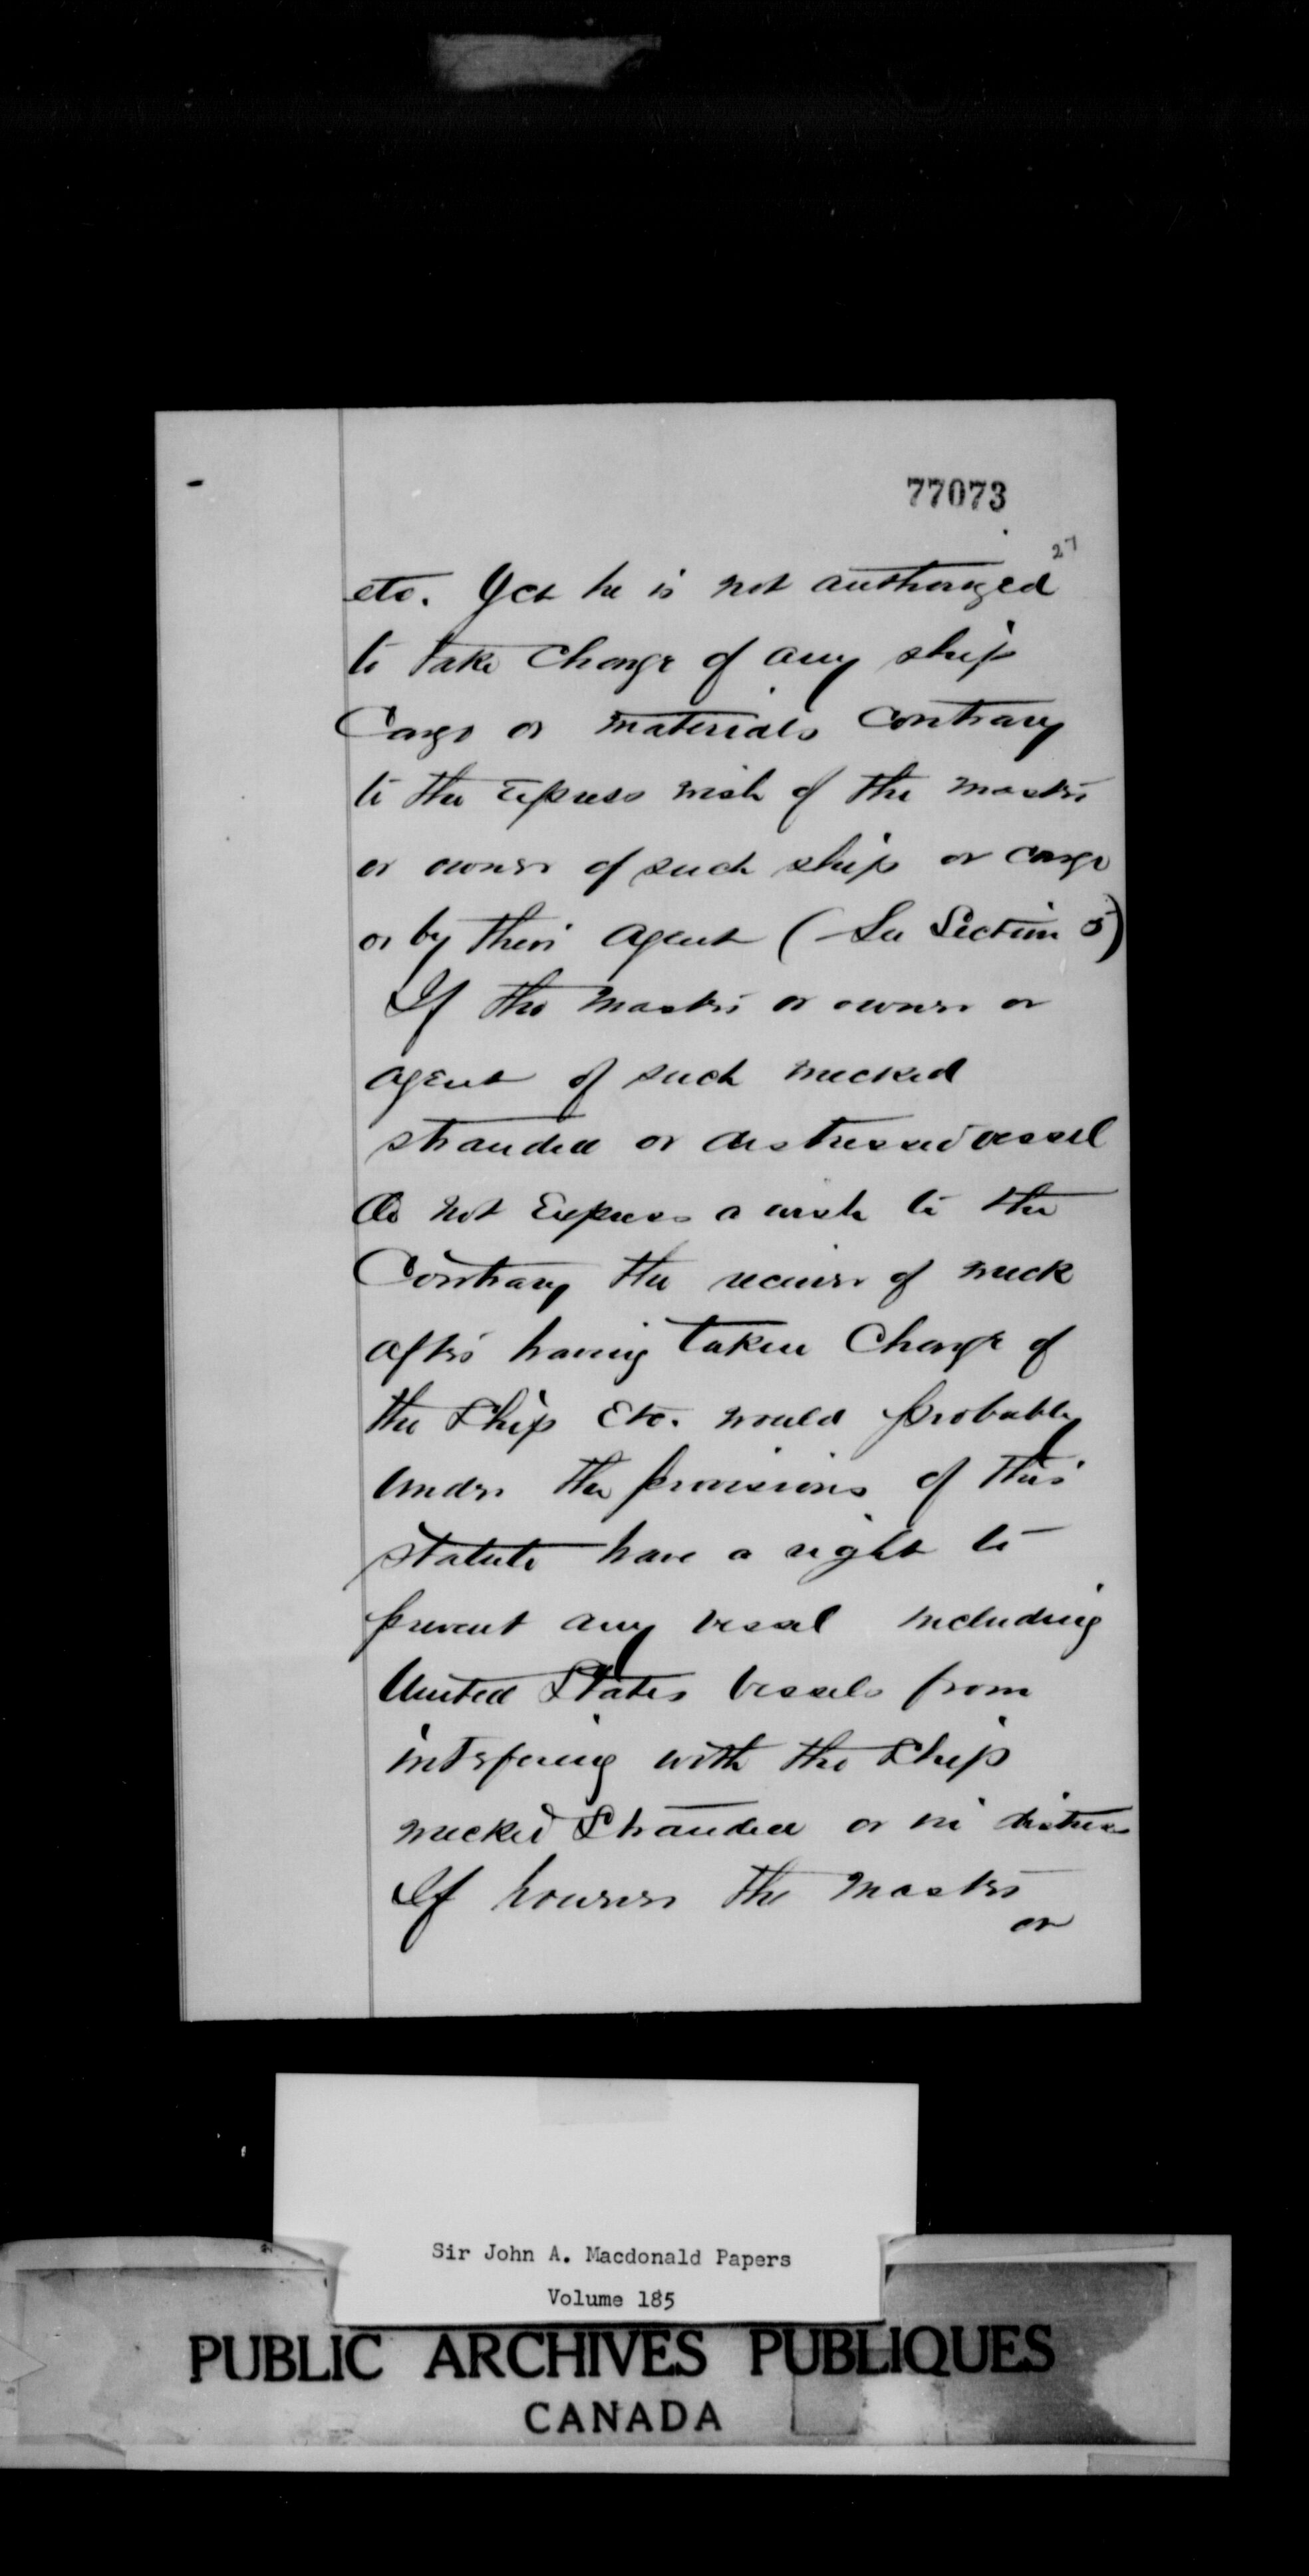 77073
27
etc. Yet he is not authorized
to take charge of any ship
Cargo or materials contrary
to the express wish of the master
or owner of such ship or cargo
or by their agent (See Section 5)
If the master or owner or
agent of such wrecked
stranded or distressed vessel
do not express a wish to the
Contrary the receiver of wreck
after having taken charge of
the ship etc. would probably
under the provisions of this
statute have a right to
prevent any vessel including
United States vessels from
interfering with the ship
wrecked stranded or in distress
If however the master
or
Sir John A. Macdonald Papers
Volume 185
PUBLIC ARCHIVES PUBLIQUES
CANADA